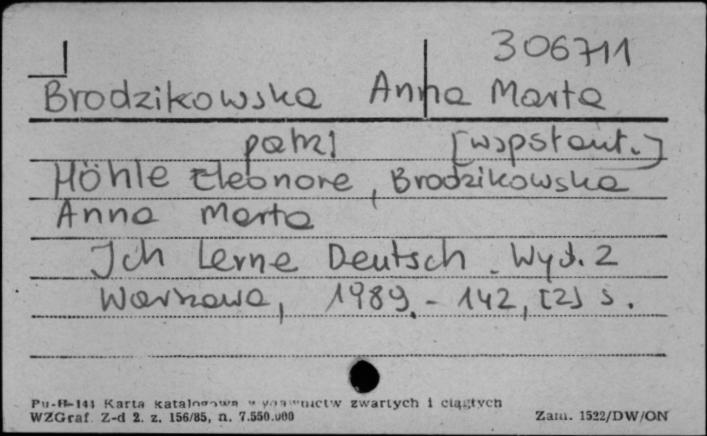 306711
Brodzikowska Anna Marta
patrz [wspłaut.]
Höhle Eleonore, Brodzikowska
Anna Marta
Ich Lerne Deutsch. Wyd. 2
Warszawa, 1989. - 142, [2] s.
Pu-B-144 Karta katalogowa wydawnictw zwartych i ciągłych
WZGraf. Z-d 2. z. 156/85, n. 7.550.000 Zam. 1522/DW/ON